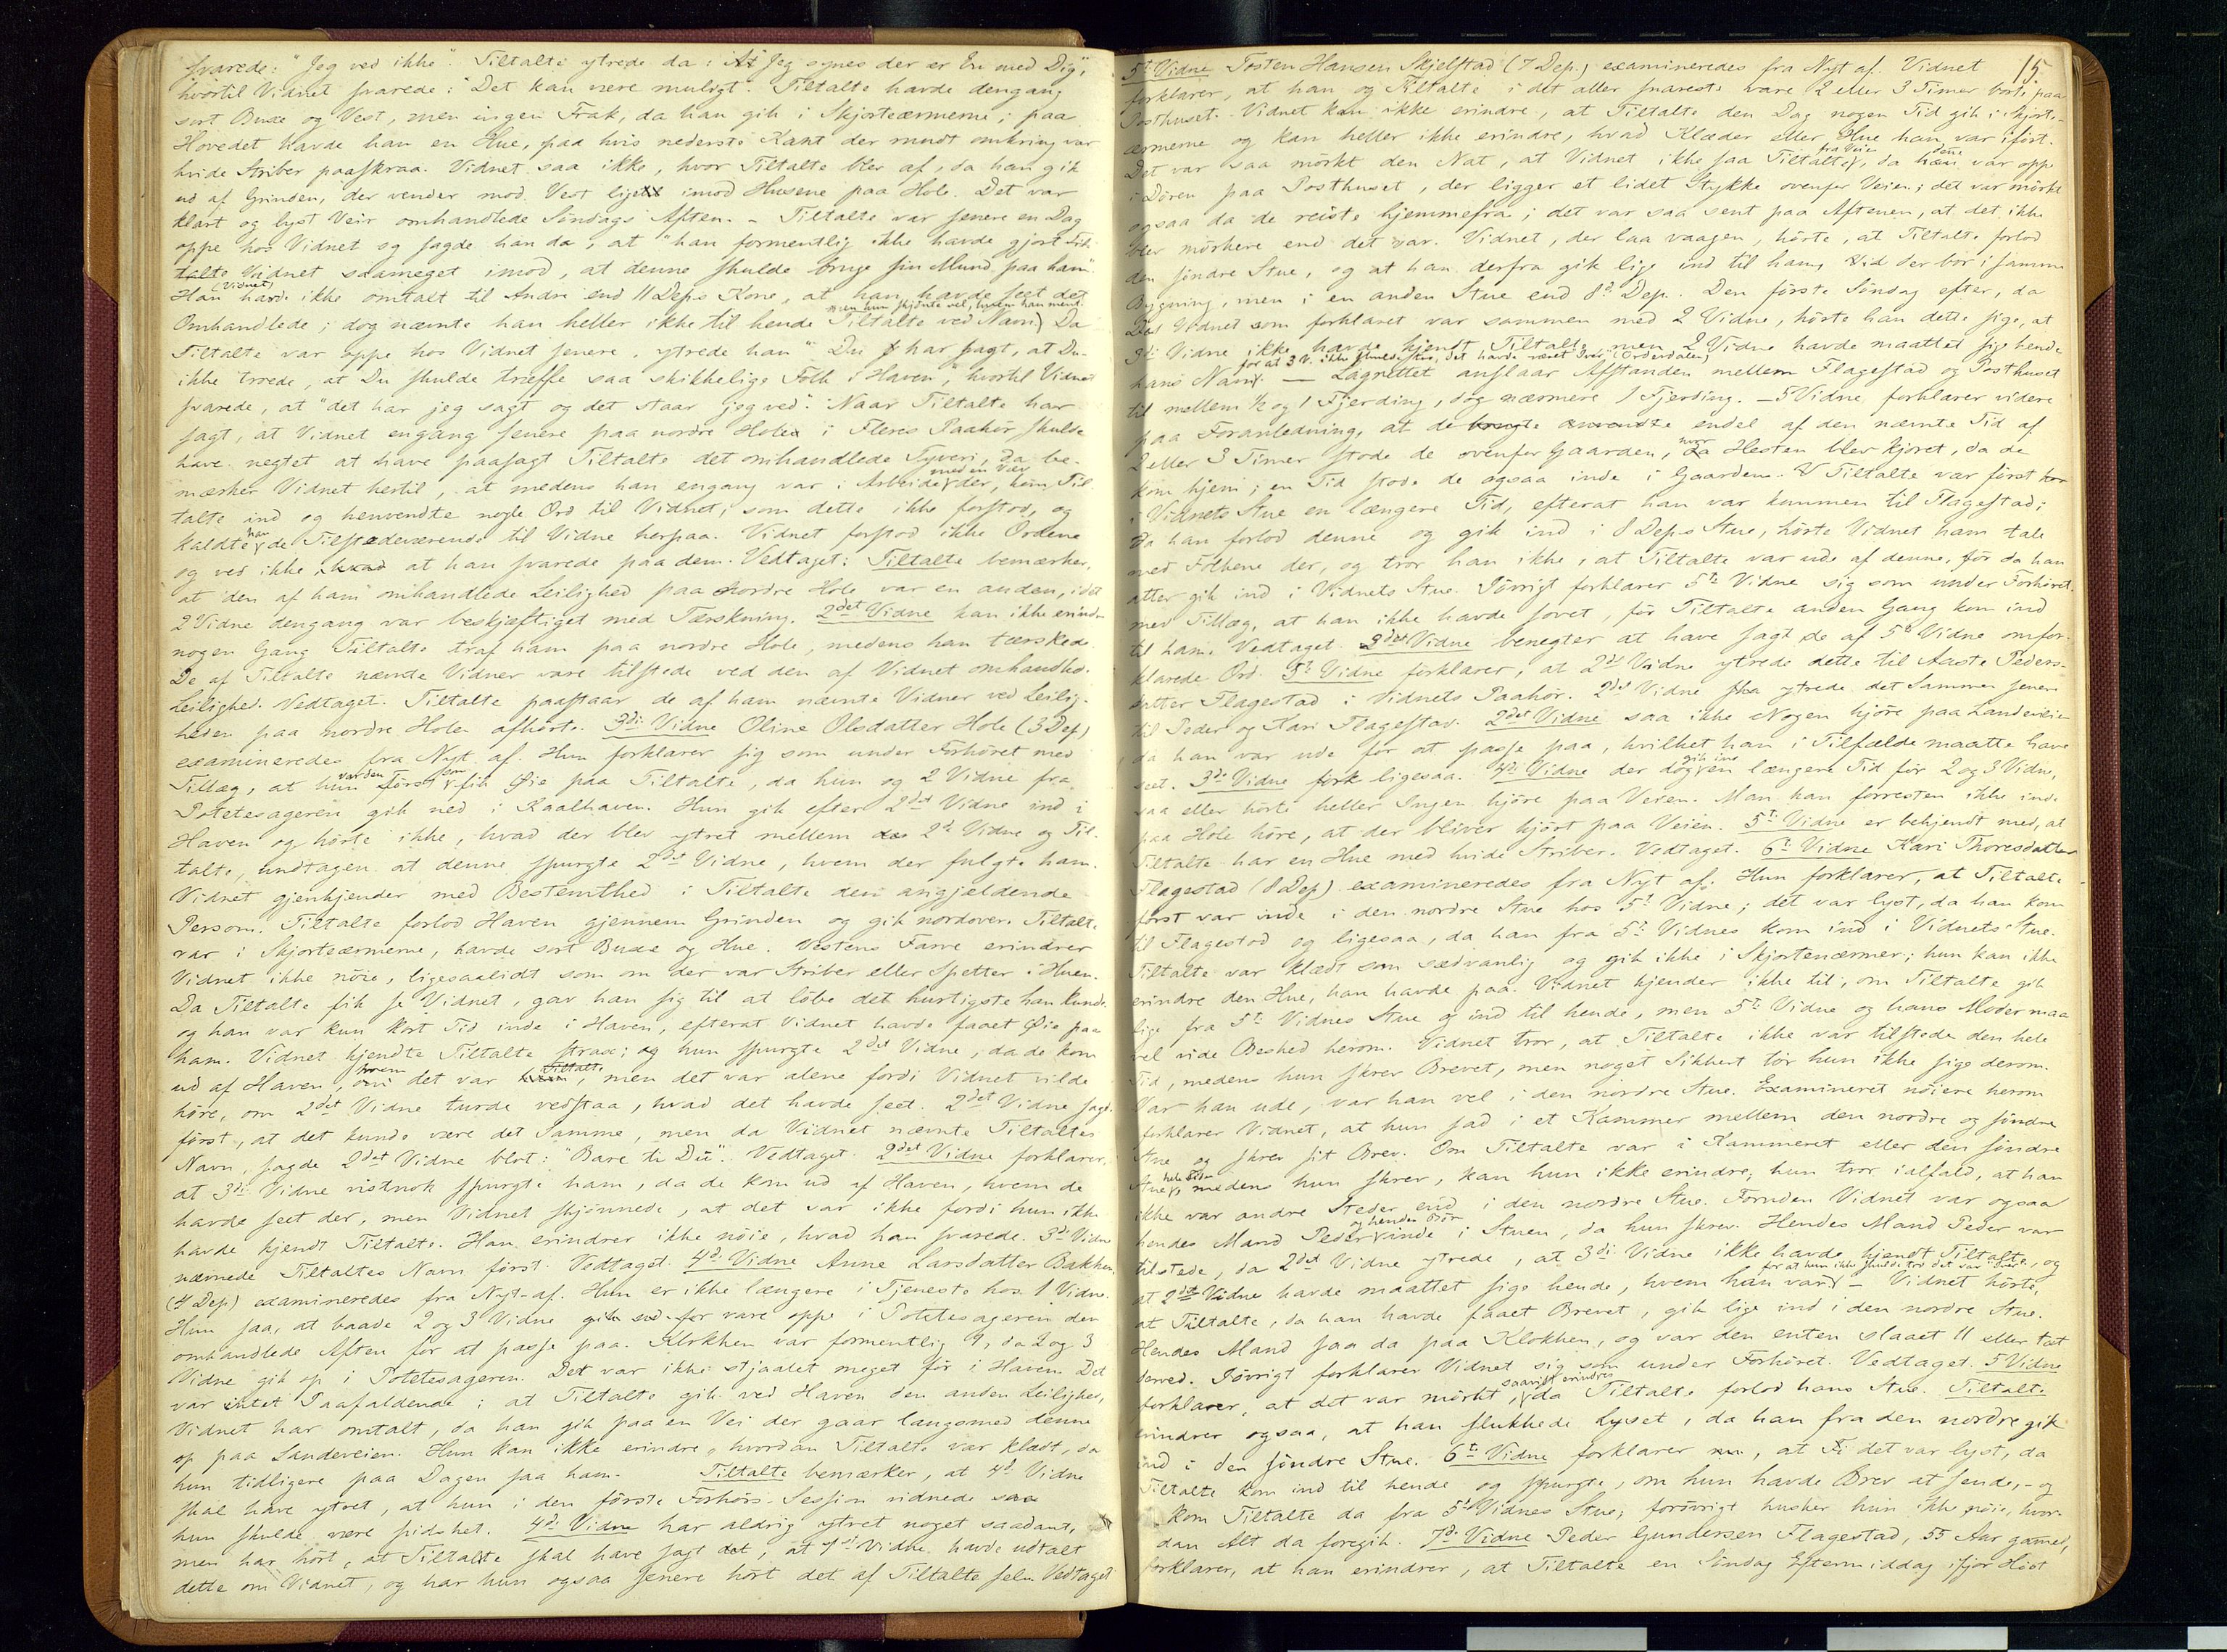 svarede: "Jeg ved ikke". Tiltalte ytrede da: At "Jeg synes der er En med Dig",
hvortil Vidnet svarede: "Det kan være muligt". Tiltalte havde dengang
sort Buxe og Vest, men ingen Frak, da han gik i Skjorteærmerne; paa
Hovedet havde han en Hue, paa hvis nederste Kant der rundt omkring var
hvide Striber paaskraa. Vidnet saa ikke, hvor Tiltalte blev af, da han gik
ud af Grinden, der vender mod Vest lige imod Husene paa Hole. Det var
klart og lyst Veir omhandlede Søndags Aften. - Tiltalte var senere en Dag
oppe hos Vidnet og sagde han da, at "han formentlig ikke havde gjort
Vidnet saameget imod, at denne skulde bruge sin Mund paa ham".
Han (Vidnet) havde ikke omtalt til Andre end 11 Deps Kone, at han havde seet det
Omhandlede; dog nævnte han heller ikke til hende Tiltalte ved Navn, men hun skjønte vel, hvem han mente. Da
Tiltalte var oppe hos Vidnet senere, ytrede han "Du har sagt, at Du
ikke troede, at Du skulde træffe saa skikkelige Folk i Haven", hvortil Vidnet
svarede, at "det har jeg sagt og det staar jeg ved". Naar Tiltalte har
sagt, at Vidnet engang senere paa nordre Hole i Fleres Paahør skulde
have negtet at have paasagt Tiltalte det omhandlede Tyveri, da be-
mærker Vidnet hertil, at medens han engang var i Arbeide med en Væv der, kom Til-
talte ind og henvendte nogle Ord til Vidnet, som dette ikke forstod, og
kaldte han de Tilstedeværende til Vidne herpaa. Vidnet forstod ikke Ordene
og ved ikke, hvad at han svarede paa dem. Vedtaget. Tiltalte bemærker,
at den af ham omhandlede Leilighed paa Nordre Hole var en anden, idet
2 Vidne dengang var beskjæftiget med Tærskning. 2det Vidne kan ikke erindre
nogen Gang Tiltalte traf ham paa nordre Hole, medens han tærskede.
De af Tiltalte nævnte Vidner vare tilstede ved den af Vidnet omhandlede
Leilighed. Vedtaget. Tiltalte paastaar de af ham nævnte Vidner ved Leilig-
heden paa nordre Hole afhørte. 3die Vidne Oline Olsdatter Hole (3 Dep)
examineredes fra Nyt af. Hun forklarer sig som under Forhøret med
Tillæg, at hun var den første som fik Øie paa Tiltalte, da hun og 2 Vidne fra
Potetesageren gik ned i Kaalhaven. Hun gik efter 2det Vidne ind i
Haven og hørte ikke, hvad der blev ytret mellem 2d Vidne og Til-
talte, undtagen at denne spurgte 2det Vidne, hvem der fulgte ham.
Vidnet gjenkjender med Bestemthed i Tiltalte den angjeldende
Person. Tiltalte forlod Haven gjennem Grinden og gik nordover. Tiltalte
var i Skjorteærmerne, havde sort Buxe og Hue. Vestens Farve erindrer
Vidnet ikke nøie, ligesaalidt som om der var Striber eller Spetter i Huen.
Da Tiltalte fik se Vidnet, gav han sig til at løbe det hurtigste han kunde
og han var kun kort Tid inde i Haven, efterat Vidnet havde faaet Øie paa
ham. Vidnet kjendte Tiltalte strax; og hun spurgte 2det Vidne, da de kom
ud af Haven, hvem det var Tiltalte, men det var alene fordi Vidnet vilde
høre, om 2det Vidne turde vedstaa, hvad det havde seet. 2det Vidne sagde
først, at det kunde være det Samme, men da Vidnet nævnte Tiltaltes
Navn, sagde 2det Vidne blot: "Bare ti Du". Vedtaget. 2det Vidne forklarer,
at 3die Vidne vistnok spurgte ham, da de kom ud af Haven, hvem de
havde seet der, men Vidnet skjønnede, at det var ikke fordi hun ikke
havde kjendt Tiltalte. Han erindrer ikke nøie, hvad han svarede. 3die Vidne
nævnede Tiltaltes Navn først. Vedtaget. 4de Vidne Anne Larsdatter Bakken
(4 Dep) examineredes fra Nyt af. Hun er ikke længere i Tjeneste hos 1 Vidne.
Hun saa, at baade 2 og 3 Vidne vare oppe i Potetesageren den
omhandlede Aften for at passe paa. Klokken var formentlig 9, da 2 og 3
Vidne gik op i Potetesageren. Det var ikke stjaalet meget før i Haven. Det
var intet Paafaldende i at Tiltalte gik ved Haven den anden Leilighed,
Vidnet har omtalt, da han gik paa en Vei der gaar langsmed denne
op paa Landeveien. Hun kan ikke erindre, hvordan Tiltalte var klædt, da
hun tidligere paa Dagen saa ham. Tiltalte bemærker, at 4de Vidne
skal have ytret, at hun i den første Forhørs-Session vidnede saa
hun skulde være sidsket. 4de Vidne har aldrig ytret noget saadant,
men har hørt, at Tiltalte skal have sagt, at 1ste Vidne havde udtalt
dette om Vidnet, og har hun ogsaa senere hørt det af Tiltalte selv. Vedtaget
15.
5te Vidne Tosten Hansen Skjelstad (7 Dep.) examineredes fra Nyt af. Vidnet
forklarer, at han og Tiltalte i det aller snareste vare 2 eller 3 Timer borte paa
Posthuset. Vidnet kan ikke erindre, at Tiltalte den Dag nogen Tid gik i Skjort-
ærmerne og kan heller ikke erindre, hvad Klæder eller Hue han var iført.
Det var saa mørkt den Nat, at Vidnet ikke saa Tiltalte fra Veien, da denne var oppe
i Døren paa Posthuset, der ligger et lidet Stykke ovenfor Veien; det var mørkt
ogsaa da de reiste hjemmefra; det var saa sent paa Aftenen, at det ikke
blev mørkere end det var. Vidnet, der laa vaagen, hørte, at Tiltalte forlod
den søndre Stue, og at han derfra gik lige ind til ham, der bor i samme
Bygning, men i en anden Stue end 8de Dep. Den første Søndag efter, da
Vidnet som forklaret var sammen med 2 Vidne, hørte han dette sige, at
3die Vidne ikke havde kjendt Tiltalte, men 2 Vidne havde maattet sige hende
hans Navn, for at 3 V. ikke skulde tro, det havde været Iver (Ordevdalen) - Lagrettet anslaar Afstanden mellem Flagestad og Posthuset
til mellem 1/2 og 1 Fjerding, dog nærmere 1 Fjerding. - 5 Vidne forklarer videre
paa Foranledning, at de anvendte endel af den nævnte Tid af
2 eller 3 Timer stode de ovenfor Gaarden, hvor Hesten blev kjøret, da de
kom hjem; en Tid stode de ogsaa inde i Gaarden. Tiltalte var først
i Vidnets Stue en længere Tid, efterat han var kommen til Flagestad;
da han forlod denne og gik ind i 8 Deps Stue, hørte Vidnet ham tale
med Folkene der, og tror han ikke, at Tiltalte var ude af denne, før da han
atter gik ind i Vidnets Stue. Iøvrigt forklarer 5te Vidne sig som under Forhøret
med Tillæg, at han ikke havde sovet, før Tiltalte anden Gang kom ind
til ham. Vedtaget. 2det Vidne benegter at have sagt de af 5te Vidne omfor-
klarede Ord. 5te Vidne forklarer, at 2det Vidne ytrede dette til Aaste Peders-
datter Flagestad i Vidnets Paahør. 2det Vidne ytrede det Samme senere
til Peder og Kari Flagestad. 2det Vidne saa ikke Nogen kjøre paa Landeveien
da han var ude for at passe paa, hvilket han i Tilfælde maatte have
seet. 3die Vidne ligesaa. 4de Vidne der dog gik ind en længere Tid før 2 og 3 Vidne,
saa eller hørte heller Ingen kjøre paa Veien. Man kan forresten ikke inde
paa Hole høre, at der bliver kjørt paa Veien. 5te Vidne er bekjendt med, at
Tiltalte har en Hue med hvide Striber. Vedtaget. 6te Vidne Kari Thoresdatter
Flagestad (8 Dep) examineredes fra Nyt af. Hun forklarer, at Tiltalte
først var inde i den nordre Stue hos 5te Vidne; det var lyst, da han kom
til Flagestad og ligesaa, da han fra 5te Vidnes kom ind i Vidnets Stue.
Tiltalte var klædt som sædvanlig og gik ikke i Skjorteærmer; hun kan ikke
erindre den Hue, han havde paa. Vidnet kjender ikke til, om Tiltalte gik
lige fra 5te Vidnes Stue og ind til hende, men 5te Vidne og hans Moder maa
vel vide Besked herom. Vidnet tror, at Tiltalte ikke var tilstede den hele
Tid, medens hun skrev Brevet, men noget Sikkert tør hun ikke sige derom.
Var han ude, var han vel i den nordre Stue. Examineret nøiere herom
forklarer Vidnet, at hun sad i et Kammer mellem den nordre og søndre
Stue og skrev sit Brev. Om Tiltalte var i Kammeret eller den søndre
Stue hele Tiden, medens hun skrev, kan hun ikke erindre; hun tror ialfald, at han
ikke var andre Steder end i den nordre Stue. Foruden Vidnet var ogsaa
hendes Mand Peder og hendes Bør inde i Stuen, da hun skrev. Hendes Mand Peder var
tilstede, da 2det Vidne ytrede, at 3die Vidne ikke havde kjendt Tiltalte, og
at 2det Vidne havde maattet sige hende, hvem han var, for at hun ikke skulde tro det var Iver. - Vidnet hørte,
at Tiltalte, da han havde faaet Brevet, gik lige ind i den nordre Stue.
Hendes Mand saa da paa Klokken, og var den enten slaaet 11 eller tæt
derved. Iøvrigt forklarer Vidnet sig som under Forhøret. Vedtaget. 5 Vidne
forklarer, at det var mørkt, saavidt erindres da Tiltalte forlod hans Stue. Tiltalte
erindrer ogsaa, at han slukkede Lyset, da han fra den nordre gik
ind i den søndre Stue. 6te Vidne forklarer, at det var lyst, da
Tiltalte kom ind til hende og spurgte, om hun havde Brev at sende, - og
kom Tiltalte da fra 5te Vidnes Stue; forøvrigt husker hun ikke nøie, hvor-
dan Alt da foregik. 7de Vidne Peder Gundersen Flagestad, 55 Aar gammel,
forklarer, at han erindrer, at Tiltalte en Søndag Eftermiddag ifjor Høst